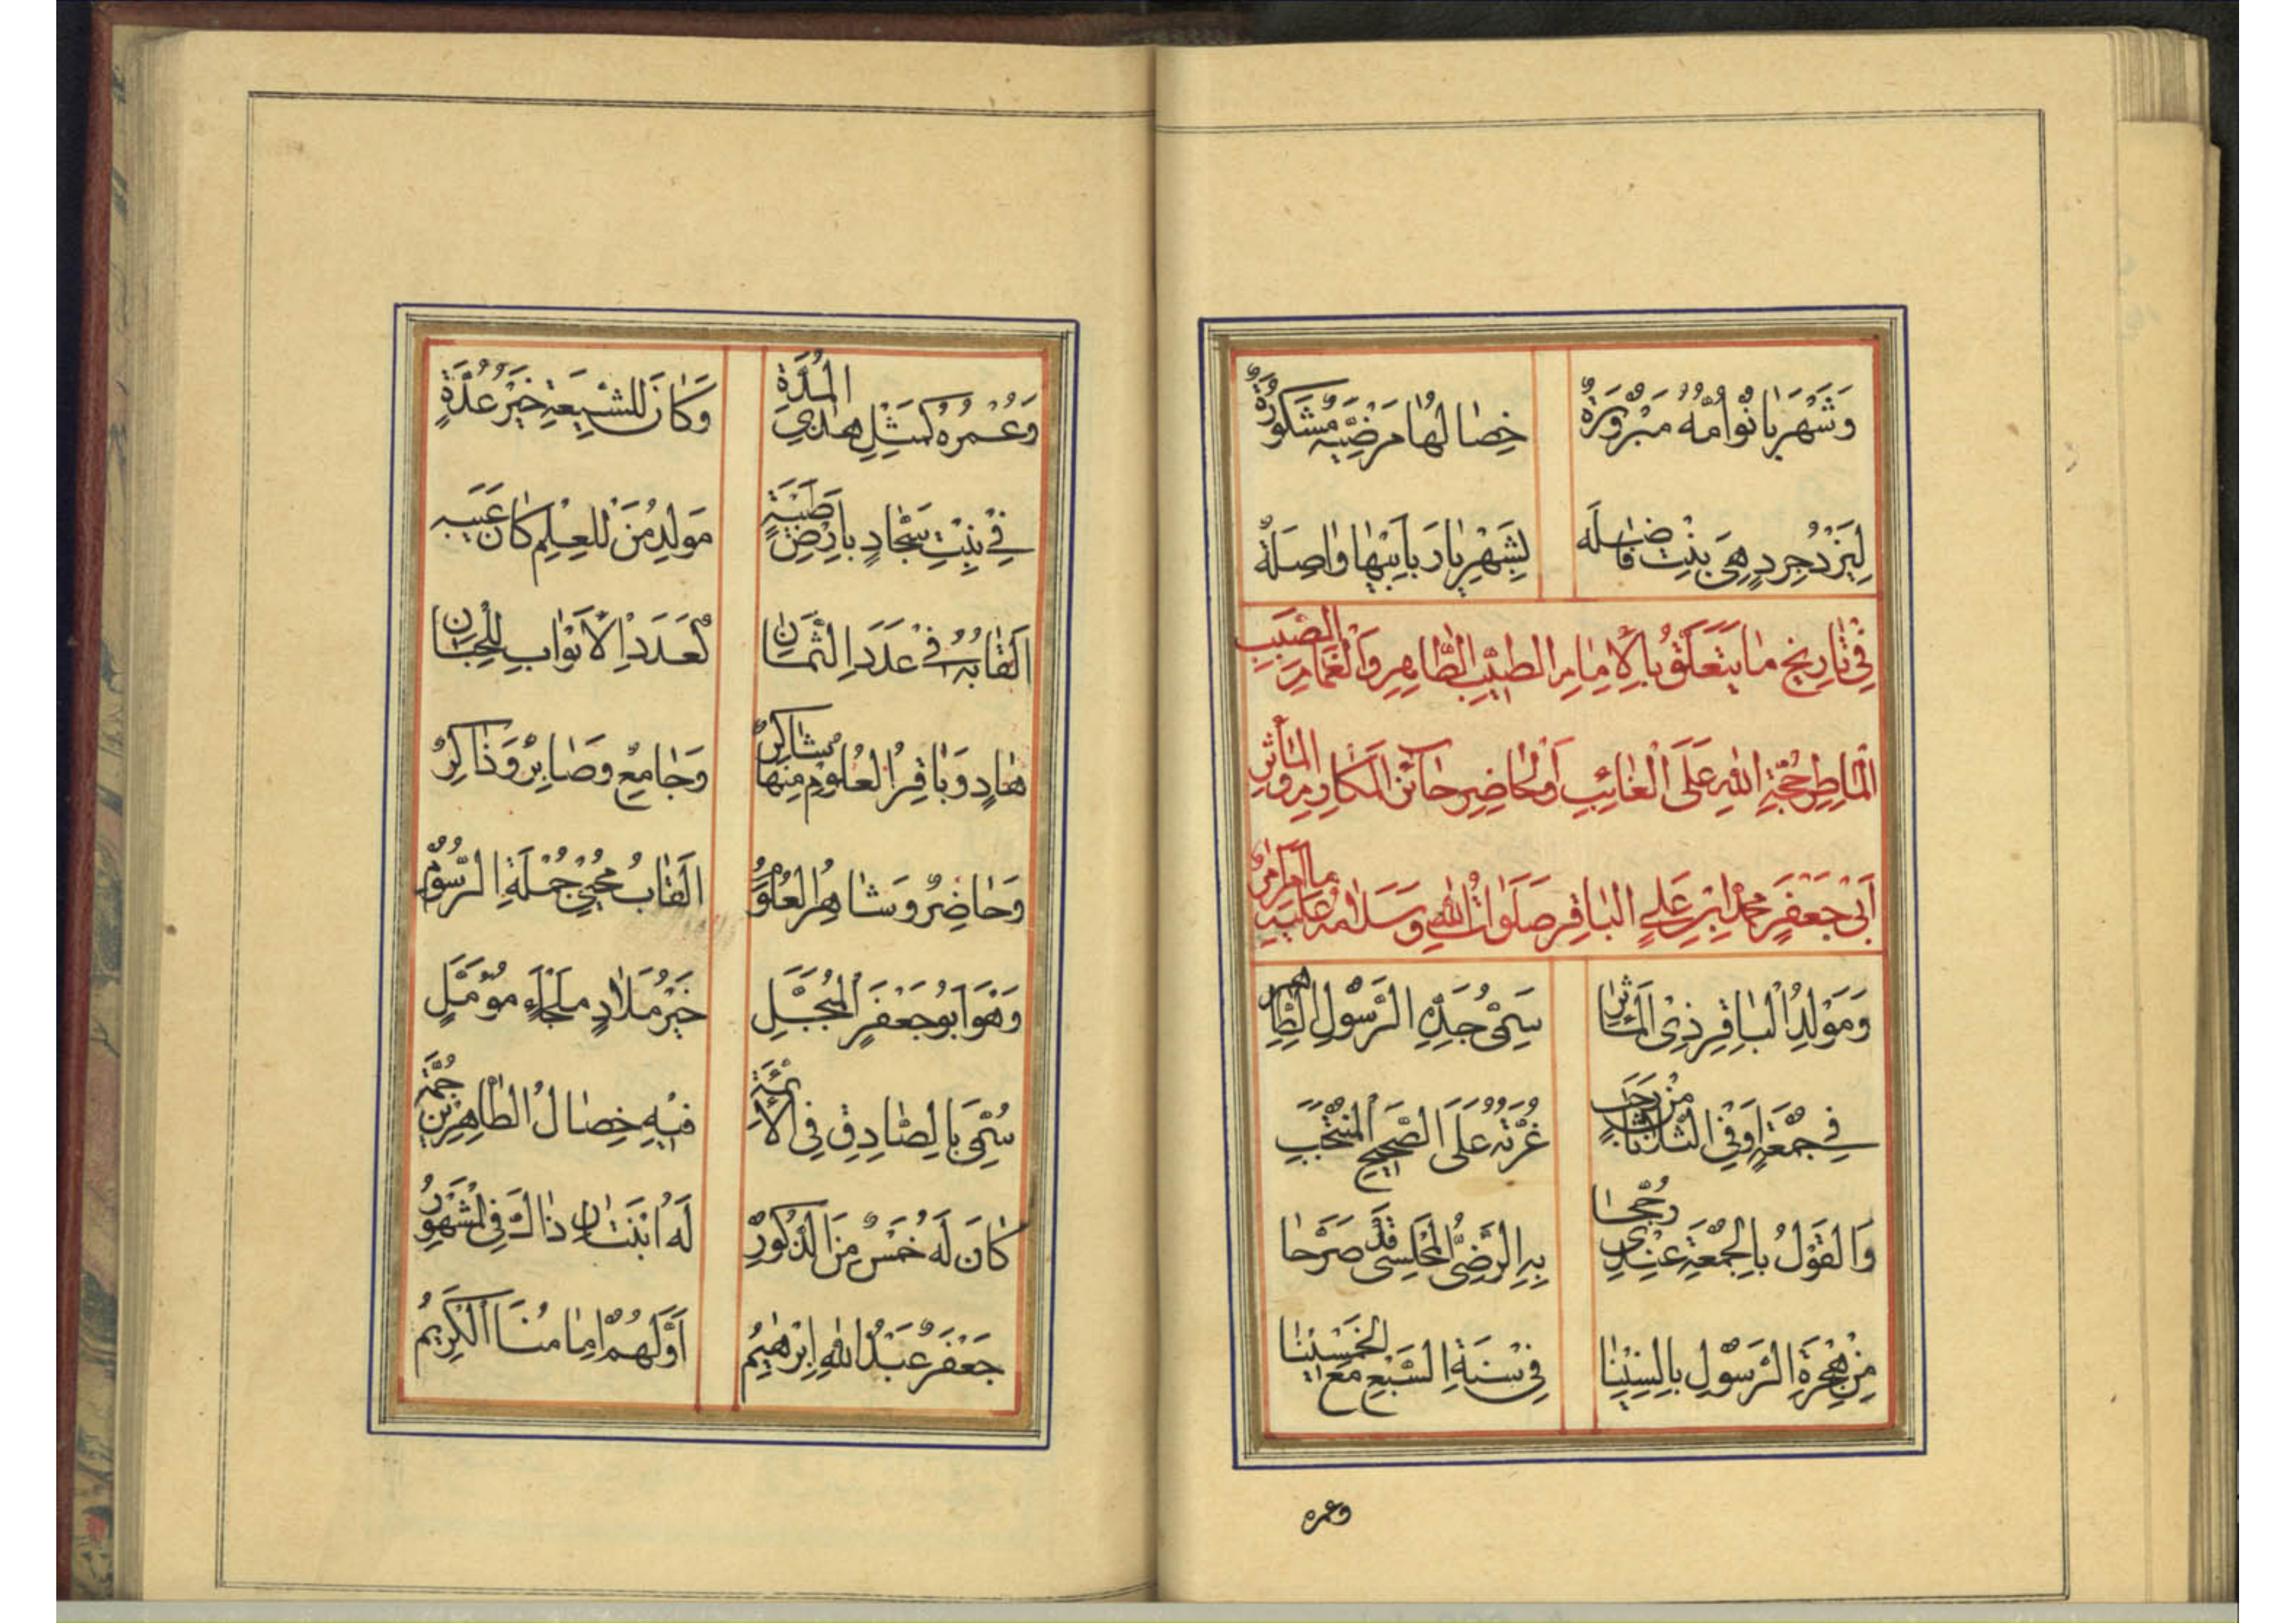 وَشَهْرَبَانُو اُمُّهُ مَبْرُورَةٌ خِصَالُهَا مَرْضِيَّةٌ مَشْكُورَةٌ
لِيَزْدُجِرْدٍ هِيَ بِنْتٌ فَاضِلَه بِشَهْرِيَارَ بِاَبِيهَا وَاصِلَةٌ
فِي تَارِيخِ مَا يَتَعَلَّقُ بِالْاِمَامِ الطَّيِّبِ الطَّاهِرِ وَالْغَمَامِ الصَّيِّبِ
الْمَاطِرِ حُجَّةِ اللهِ عَلَى الْغَائِبِ اَوِ الْحَاضِرِ حَائِزِ الْمَكَارِمِ وَالْمَآثِرِ
اَبِي جَعْفَرٍ مُحَمَّدِ بْنِ عَلِيٍّ الْبَاقِرِ صَلَوَاتُ اللهِ وَسَلَامُهُ عَلَيْهِ
وَمَوْلِدُ الْبَاقِرِ ذِي الْمَآثِرِ سَمِيُّ جَدِّهِ الرَّسُولِ الطَّاهِرِ
فِي جُمْعَةٍ اَوْ فِي الثَّلَاثَا مِنْ رَجَبٍ غُرَّتِهِ عَلَى الصَّحِيحِ الْمُنْتَخَبِ
وَالْقَوْلُ بِالْجُمْعَةِ عِنْدِي رُجِّحَا بِهِ الرَّضِيُّ الْمَجْلِسِي قَدْ صَرَّحَا
مِنْ هِجْرَةِ الرَّسُولِ بِالسِّنِينَا فِي سَنَةِ السَّبْعِ مَعَ الْخَمْسِينَا
وعمره
وَعُمْرُهُ كَمِثْلِ هٰذِي الْمُدَّةِ وَكَانَ لِلشِّيعَةِ خَيْرَ عُدَّةٍ
فِي بَيْتِ سَجَّادٍ بِاَرْضِ طَيْبَةٍ مَوْلِدُ مَنْ لِلْعِلْمِ كَانَ عَيْبَه
اَلْقَابُهُ فِي عَدَدِ الثَّمَانِ كَعَدَدِ الْاَبْوَابِ لِلْجِنَانِ
هَادٍ وَبَاقِرُ الْعُلُومِ مِنْهَا شَاكِرٌ وَجَامِعٌ وَصَابِرٌ وَذَاكِرٌ
وَحَاضِرٌ وَشَاهِرُ الْعُلُومِ اَلْقَابُ مُحْيِي جُمْلَةِ الرُّسُومِ
وَهُوَ اَبُو جَعْفَرٍ الْمُبَجَّلِ خَيْرُ مَلَاذٍ مَلْجَاءٍ مُؤَمَّلٍ
سُمِّيَ بِالصَّادِقِ فِي الْاَئِمَّةِ فِيهِ خِصَالُ الطَّاهِرِينَ جُمَّة
كَانَ لَهُ خَمْسٌ مِنَ الذُّكُورِ لَهُ ابْنَتَانِ ذَاكَ فِي الْمَشْهُورِ
جَعْفَرٌ عَبْدُ اللهِ اِبْرٰهِيمُ اَوَّلُهُمْ اِمَامُنَا الْكَرِيمُ